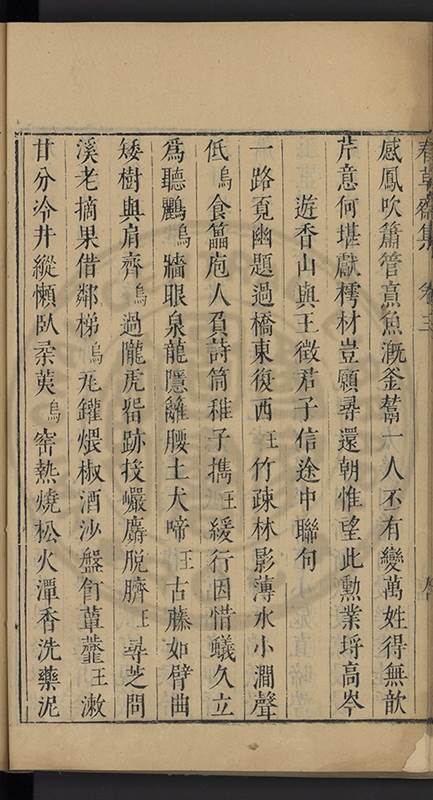 感鳳吹簫管烹魚漑釜鬵一人丕有變萬姓得無歆
芹意何堪獻樗材豈願尋還朝惟望此勲業埒高岑
遊香山與王徵君子信途中聯句
一路覔幽題過橋東復西王竹疎林影薄水小澗聲
低塢食篇庖人負詩筒稚子攜王緩行因惜蟻久立
為聽鸝塢牆眼泉龍隱籬腰土犬啼王古藤如臂曲
矮樹與肩齊塢過隴虎留跡投巖麝脫臍王尋芝問
溪老摘果借鄰梯塢瓦鑵煨椒酒沙盤飣薑虀王漱
甘分冷井縱懶臥柔荑塢窑熱燒松火潭香洗藥泥